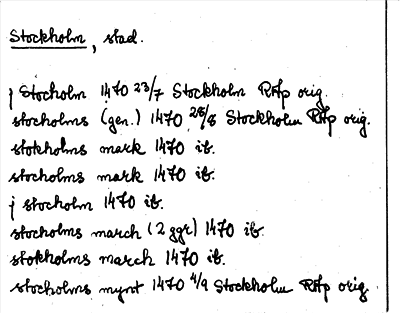 Stockholm, stad.
j Stocholm 1470 23/7 Stockholm RAp orig.
stocholms (gen.) 1470 28/8 Stockholm RAp orig.
stokholms mark 1470 ib.
stocholms mark 1470 ib.
j stocholm 1470 ib.
stocholms march (2 ggr) 1470 ib.
stokholms march 1470 ib.
stocholms mynt 1470 4/9 Stockholm RAp orig